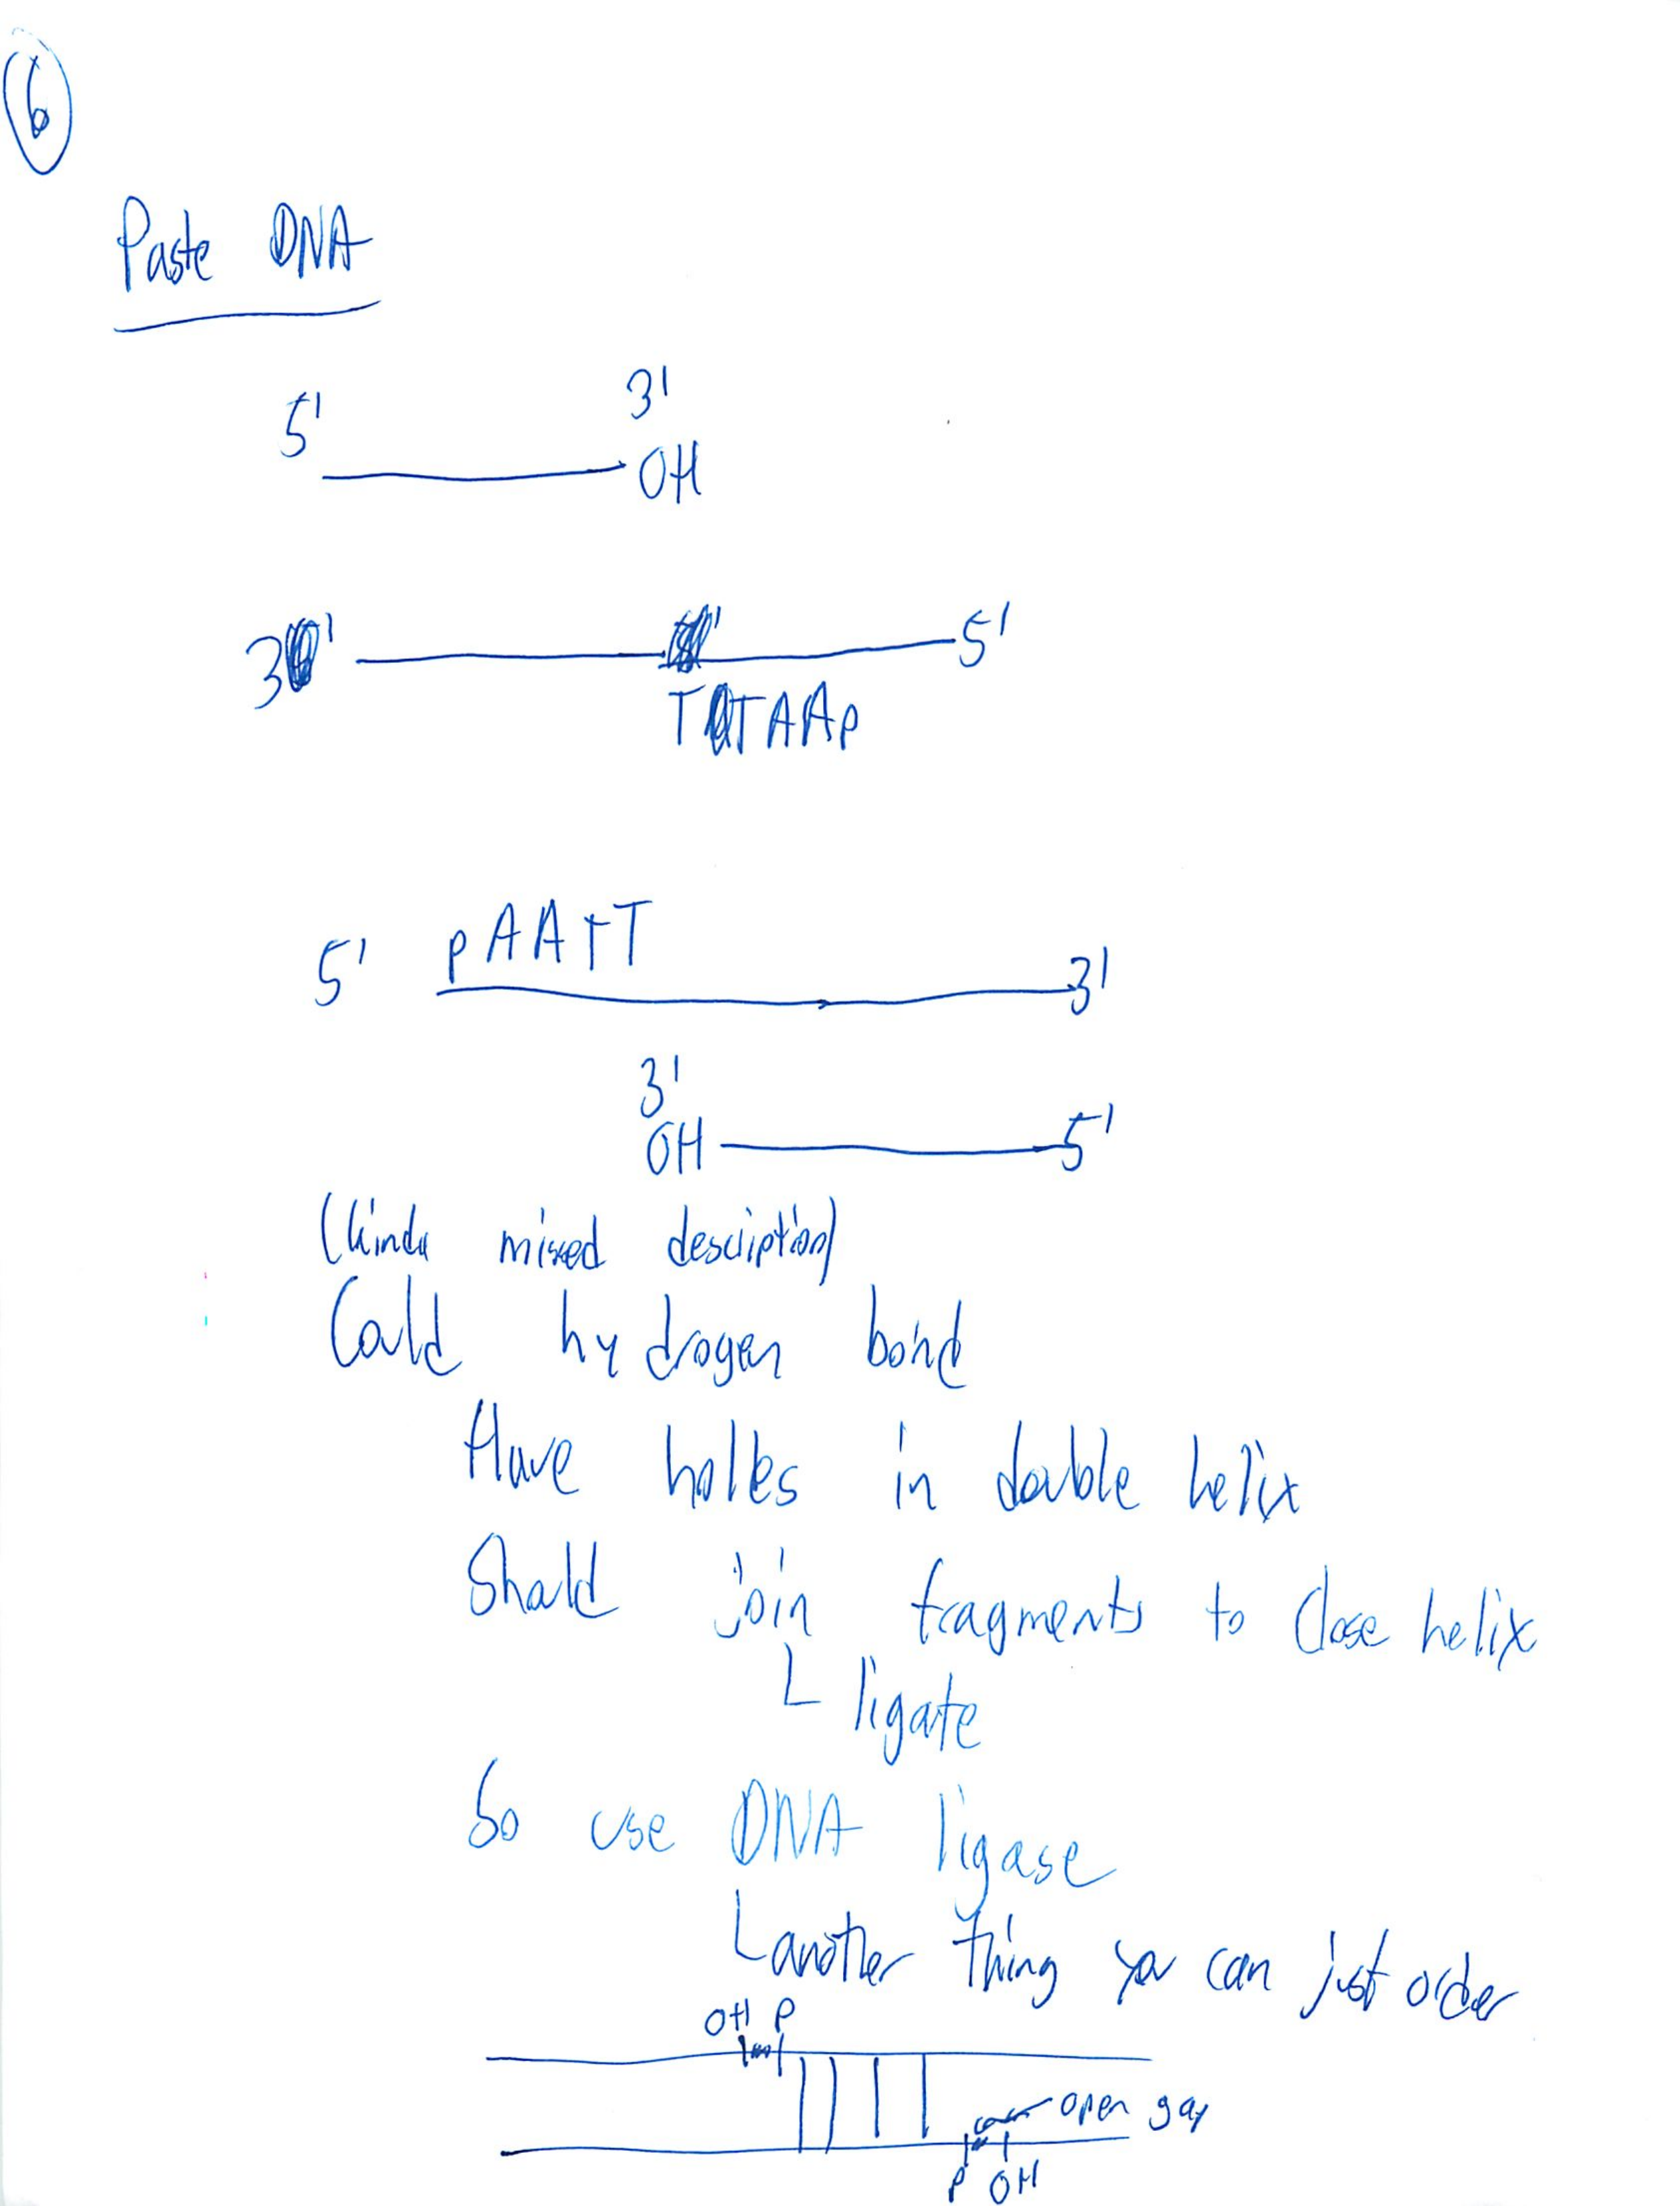 6
Paste DNA
5' 3'
OH
3' 5'
TTAAp
5' pAATT 3'
3'
OH 5'
(kinda missed description)
Could hydrogen bond
Have holes in double helix
Should join fragments to close helix
ligate
So use DNA ligase
another thing you can just order
OH P
open gap
P OH